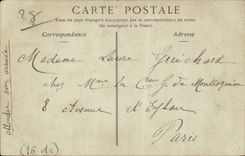 28
CARTE POSTALE
Tous les pays étrangers n'acceptent pas la correspondance au recto
(Se renseigner à la Poste).
Correspondance
Adresse
Madame Laure Guichard
chez Mme la Ctesse G. de Montesquiou
8 Avenue d'Eylau
Paris
attendre son arrivée